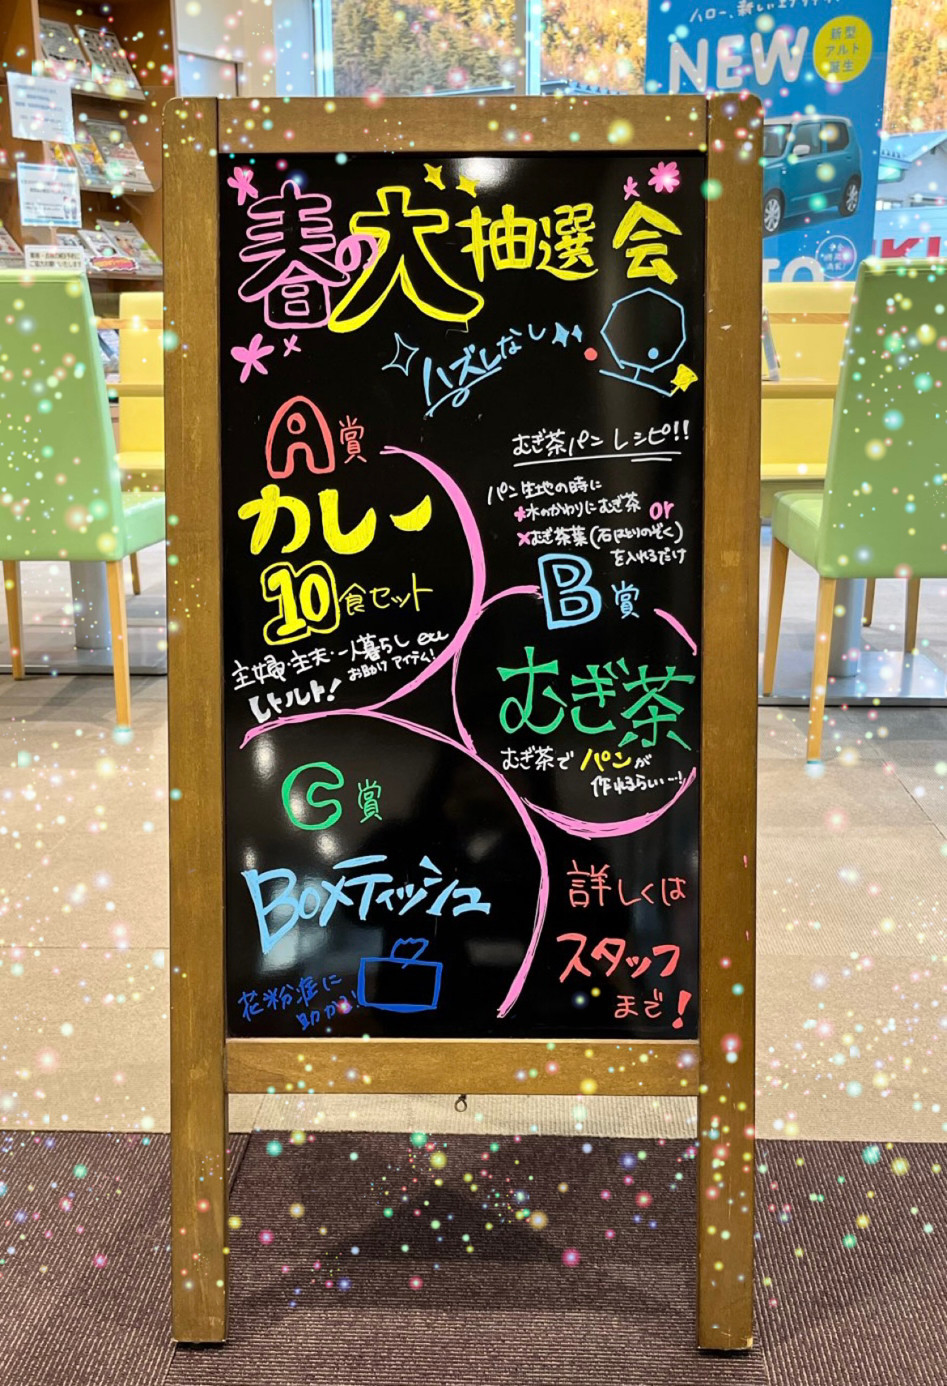 ハロー、新しい
NEW
新型
アルト
誕生
春の大抽選会
ハズレなし
A賞
カレー
10食セット
主婦・主夫・一人暮らし etc
お助けアイテム!
レトルト!
むぎ茶パンレシピ!!
パン生地の時に
*水のかわりにむぎ茶 or
*むぎ茶葉(石はとりのぞく)
を入れるだけ
B賞
むぎ茶
むぎ茶でパンが
作れるらしい…!
C賞
BOXティッシュ
花粉症に
助かる!
詳しくは
スタッフ
まで!